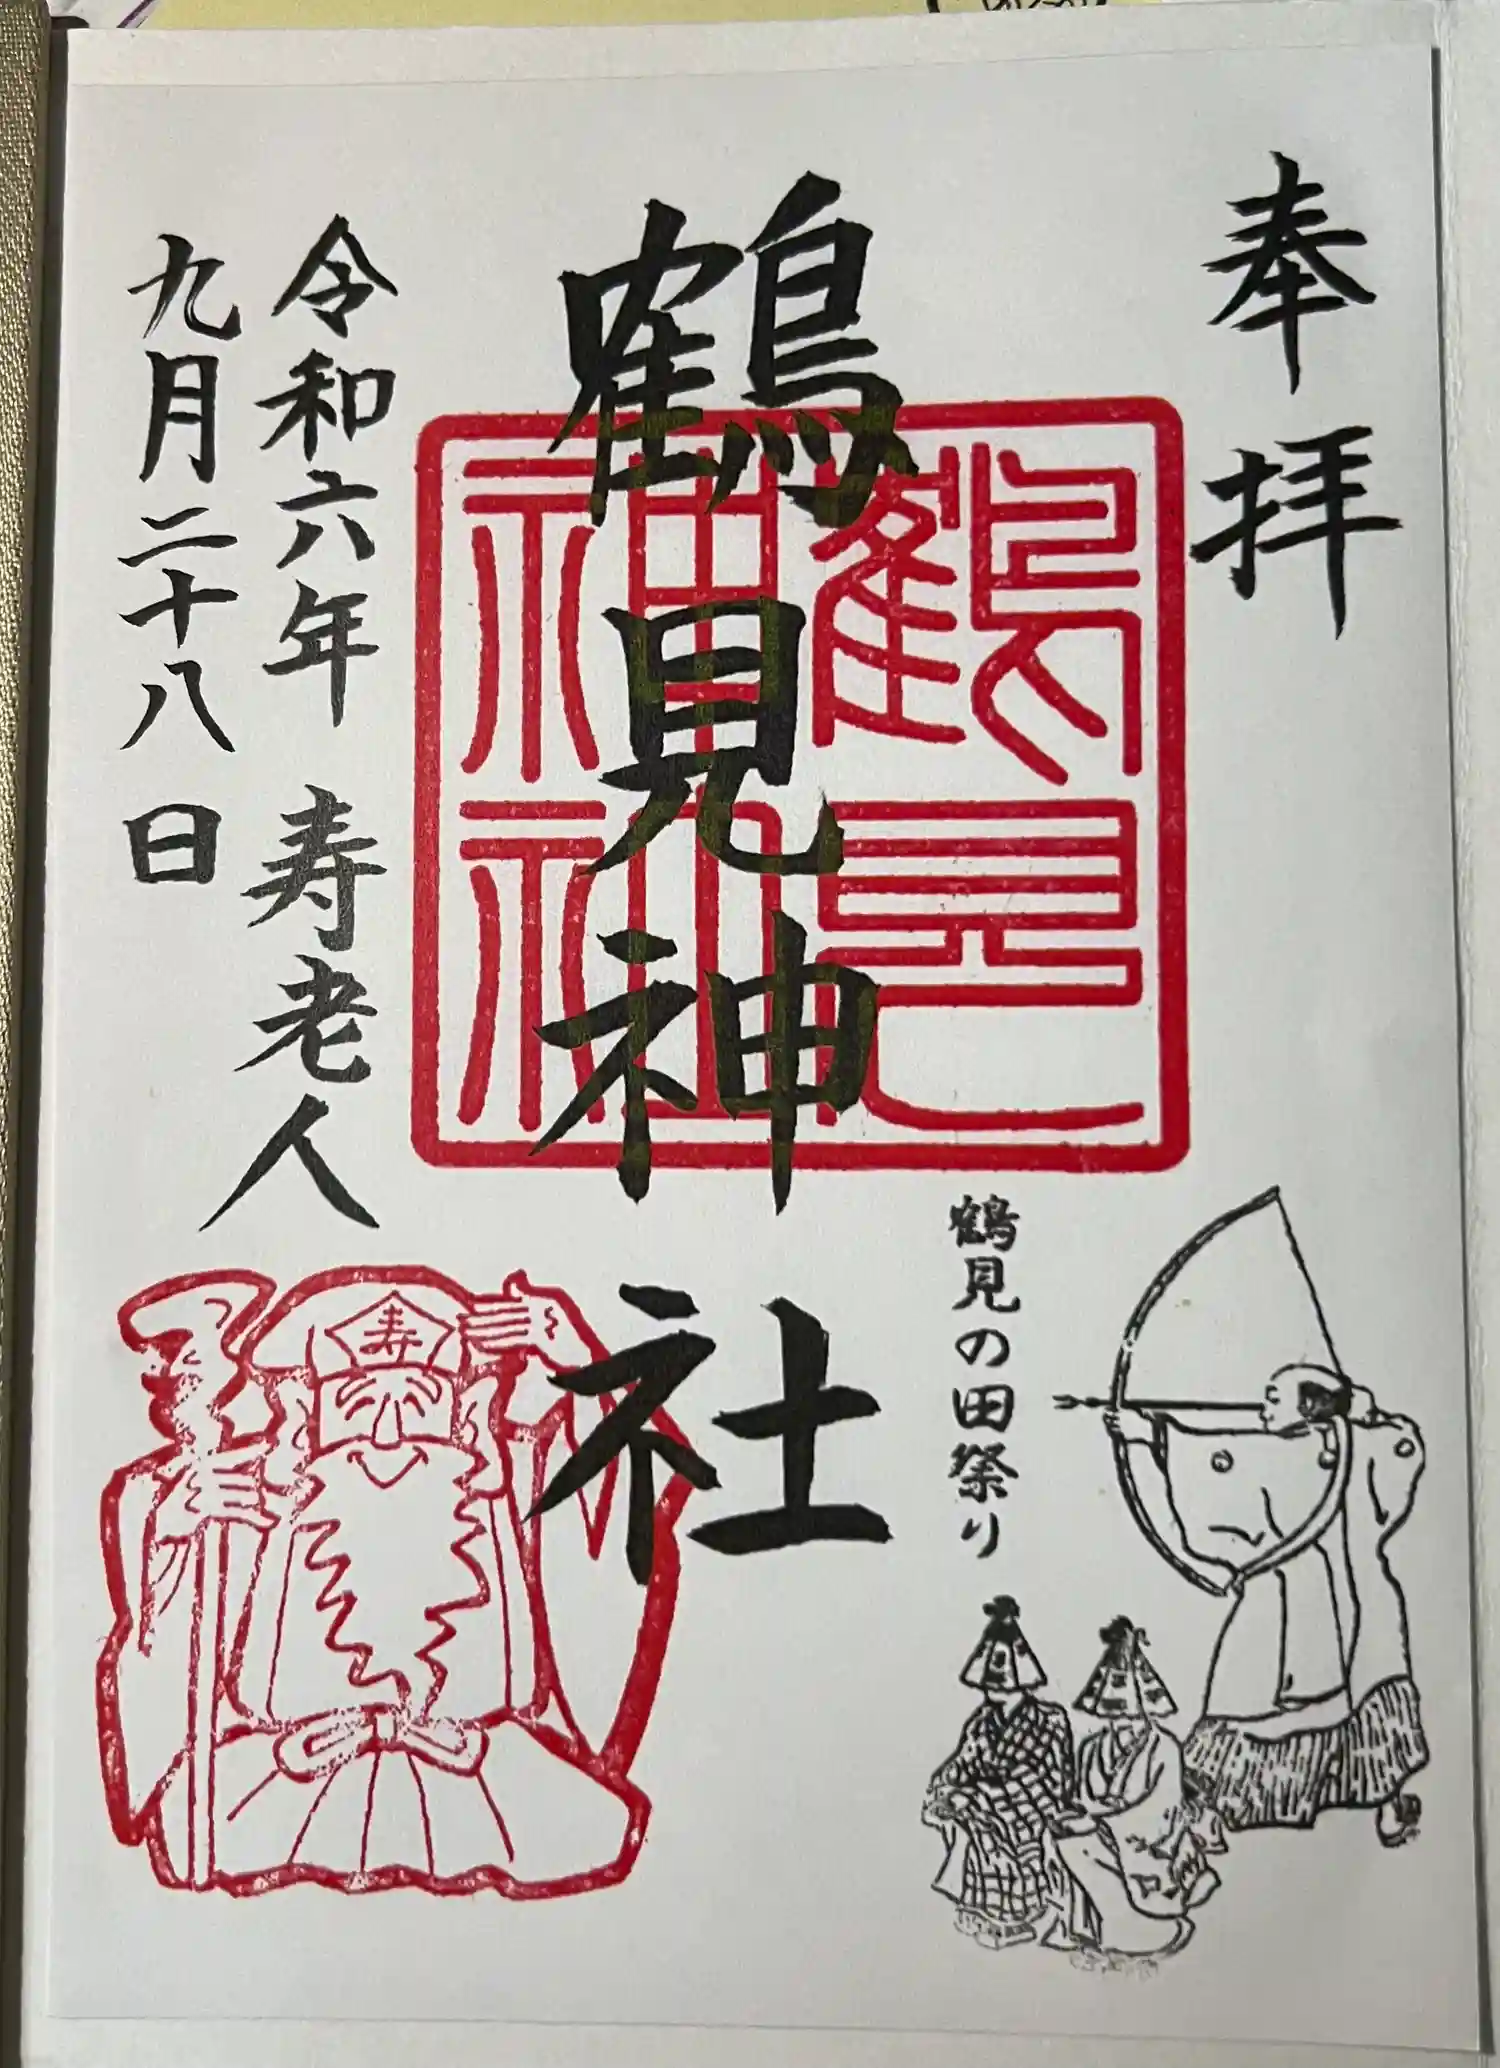 奉拝
鶴見神社
鶴見
神社
鶴見の田祭り
令和六年 寿老人
九月二十八日
寿